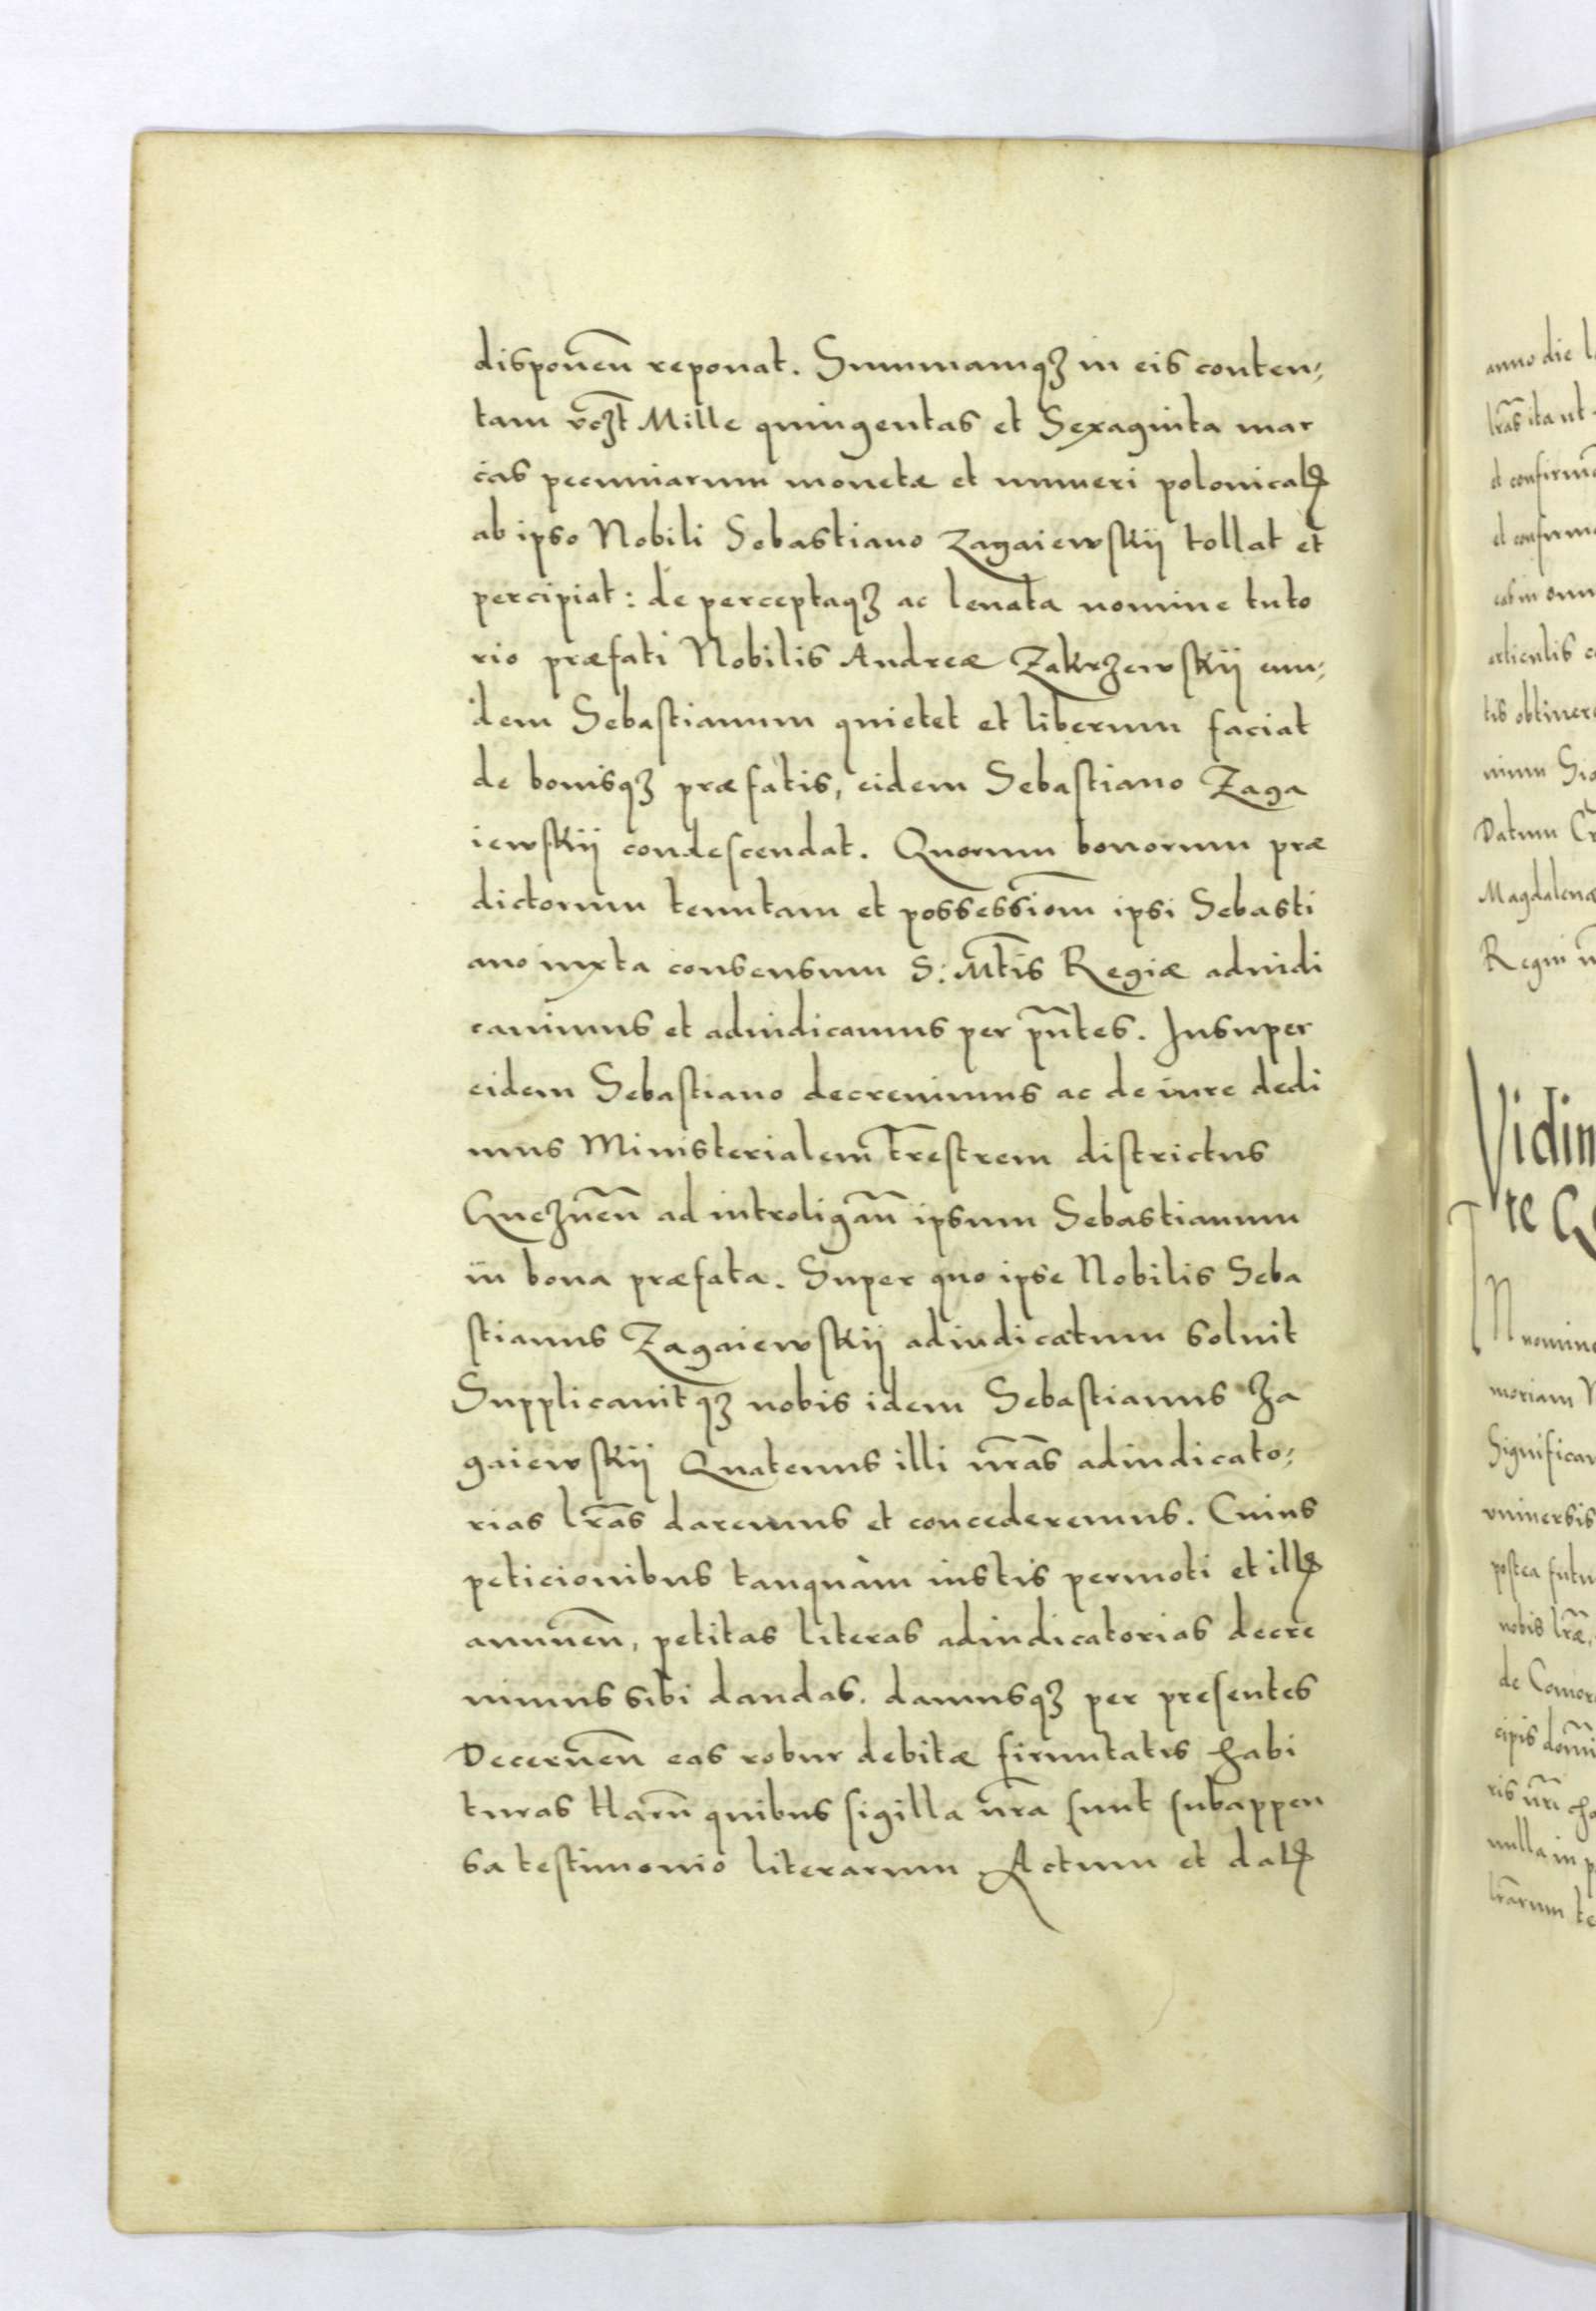 disponeñ reponat. Summamqꝫ in eis conten,
tam vꝫt Mille quingentas et Sexaginta mar
cas pecuniarum monetæ et numeri polonicalꝭ
ab ipso Nobili Sebastiano Zagaiewskij tollat et
percipiat: de perceptaqꝫ ac leuata nomine tuto
rio præfati Nobilis Andreæ Zakrzewskij eun,
dem Sebastianum quietet et liberum faciat
de bonisqꝫ præfatis, eidem Sebastiano Zaga
iewskij condescendat. Quorum bonorum præ
dictorum tenutam et possessiom̃ ipsi Sebasti
ano iuxta consensum S: Mt̃is Regiæ adiudi
cauimus et adiudicamus per pñtes. Insuper
eidem Sebastiano decreuimus ac de iure dedi
mus Ministerialem Tr̃estrem districtus
Gnezneñ ad introligañ ipsum Sebastianum
in bona præfata. Super quo ipse Nobilis Seba
stianus Zagaiewskij adiudicatum soluit
Supplicauitqꝫ nobis idem Sebastianus Za
gaiewskij Quatenus illi nr̃as adiudicato,
rias lr̃as daremus et concederemus. Cuius
peticionibus tanquam iustis permoti et illꝭ
annueñ, petitas literas adiudicatorias decre
uimus sibi dandas. damusqꝫ per presentes
Decerneñ eas robur debitæ firmitatis habi
turas Harũ quibus sigilla nr̃a sunt subappen
sa testimonio literarum Actum et datꝭ
anno die
lr̃as ita ut
et
et
articulis
tis
Datum
Magdalenæ
Regni
te
moriam
vniuersis
postea
nobis lr̃æ,
de
cipis
ris nr̃i
nulla in
lr̃arum